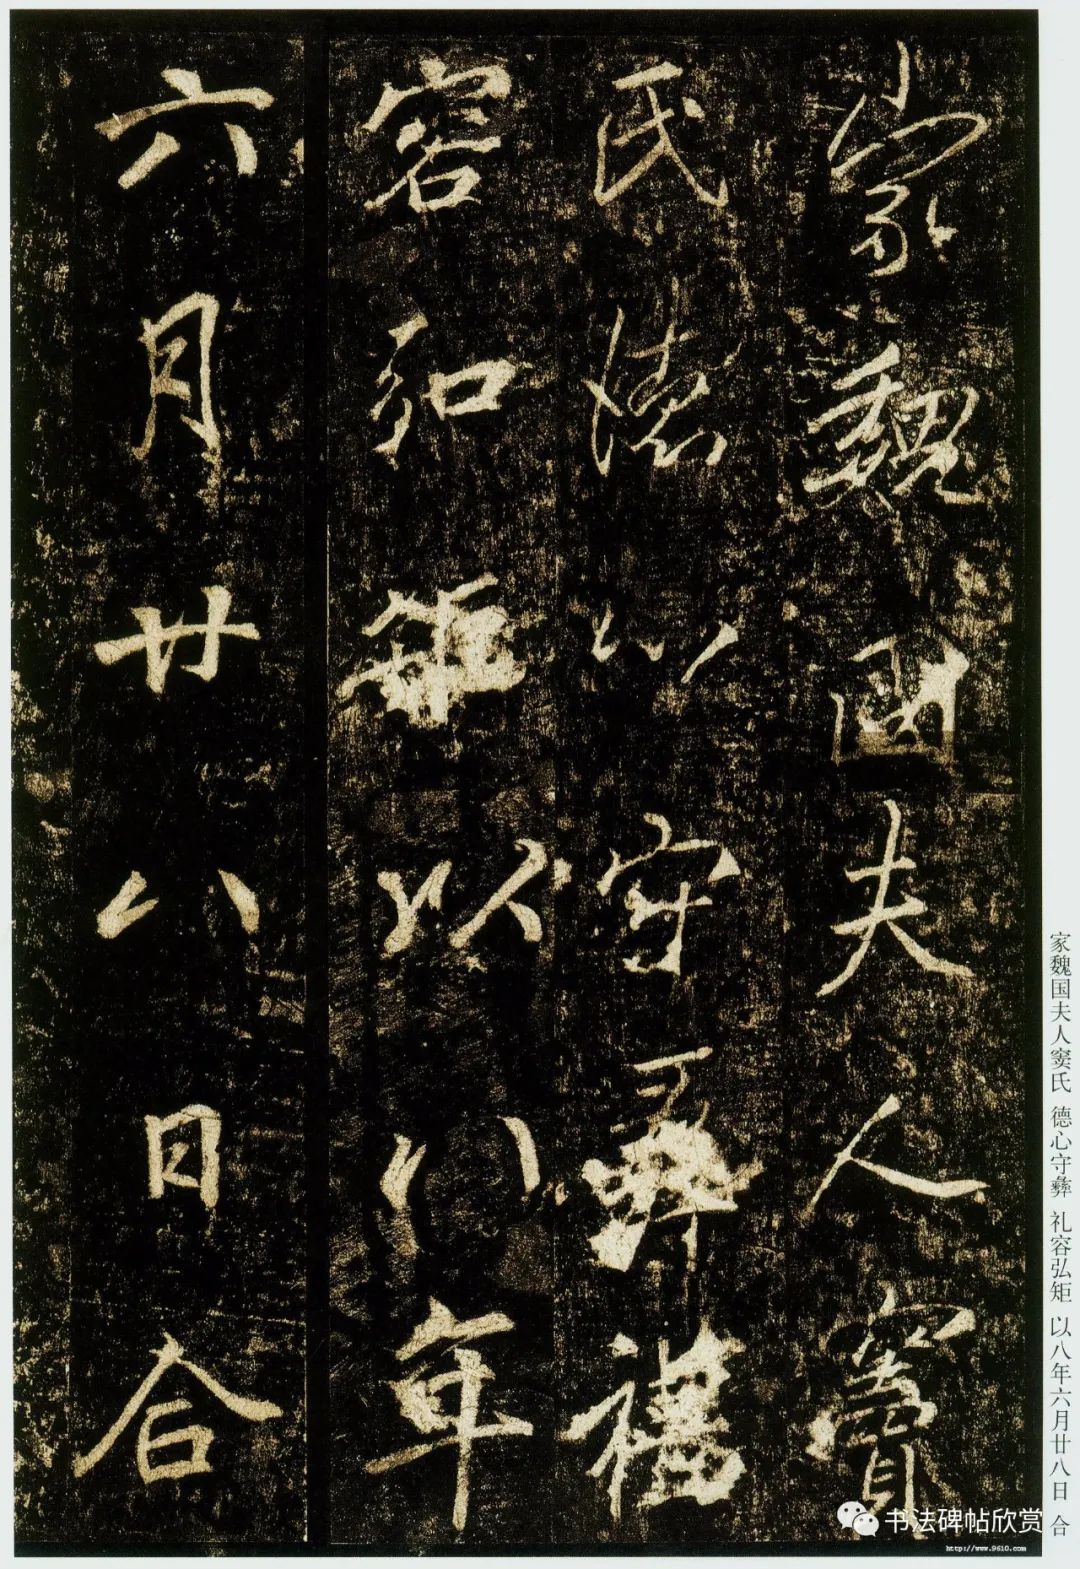 家魏國夫人竇
氏德心守彝禮
容弘矩以八年
六月廿八日合
家魏国夫人窦氏 德心守彝 礼容弘矩 以八年六月廿八日 合
书法碑帖欣赏
http://www.9610.com